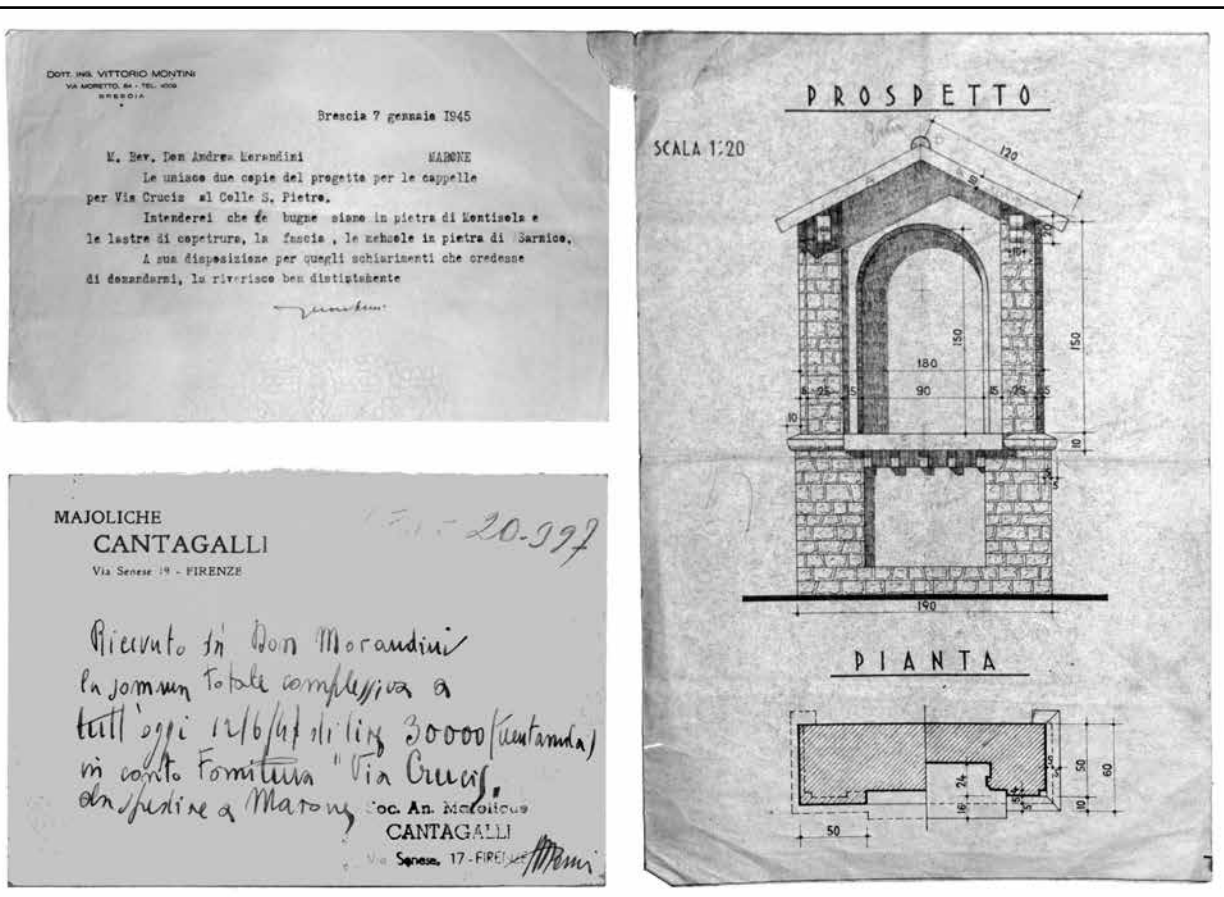 DOTT. ING. VITTORIO MONTINI
VIA MORETTO, 84 - TEL.
BRESCIA
Brescia 7 gennaio 1945
M. Rev. Don Andrea Morandini MARONE
Le unisco due copie del progetto per le cappelle
per Via Crucis al Colle S. Pietro.
Intenderei che le bugne siano in pietra di Montisola e
le lastre di copetrura, la fascia, le mensole in pietra di Sarnico.
A sua disposizione per quegli schiarimenti che credesse
di domandarmi, la riverisco ben distintamente
MAJOLICHE
CANTAGALLI
Via Senese 19 - FIRENZE
20-997
Ricevuto da Don Morandini
la somma totale complessiva a
tutt'oggi 12/6/47 di lire 30000 (trentamila)
in conto Fornitura "Via Crucis"
da spedire a Marone
Soc. An. Majoliche
CANTAGALLI
Via Senese, 17 - FIRENZE
PROSPETTO
SCALA 1:20
120
10
20
10
150
150
180
5 25 15 90 15 25 5
10
10
5
190
PIANTA
24
16
50
10
60
5
50